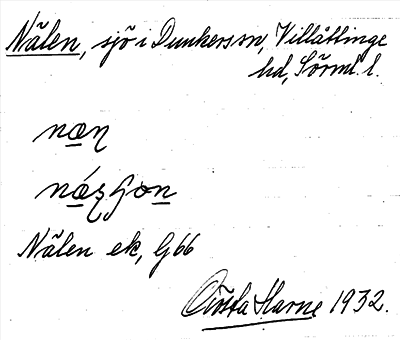 Nälen, sjö i Dunkers sn, Villåttinge
hd, Sörml. l.
Nälen ek, G66
Gösta Harne 1932.